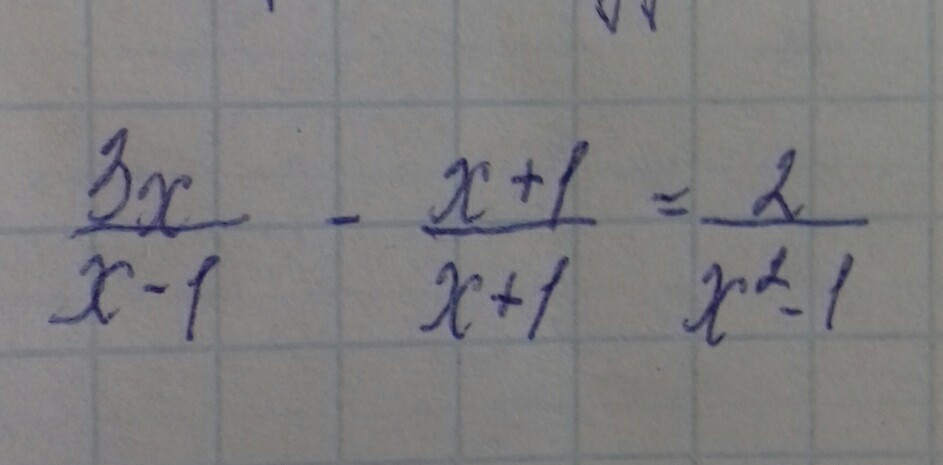 3x/(x-1) - (x+1)/(x+1) = 2/(x²-1)